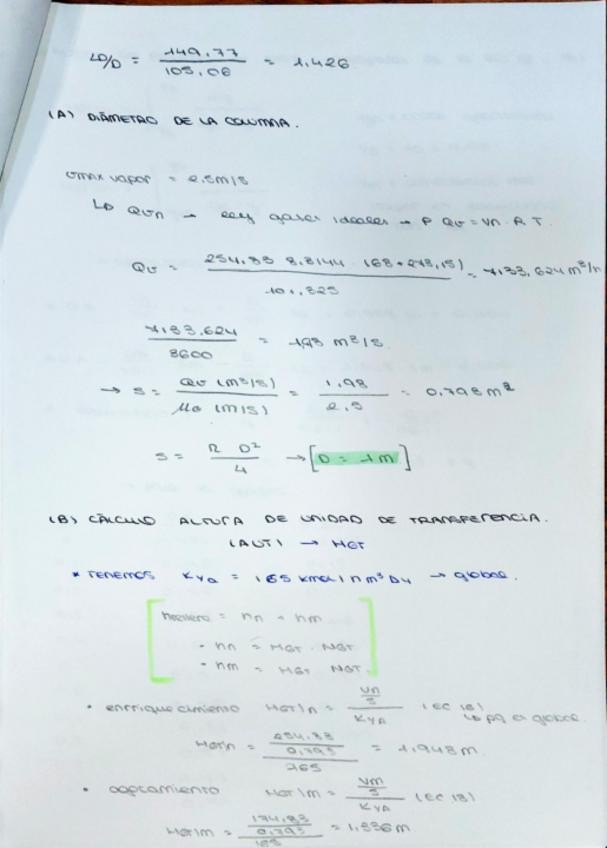 LD/D = 149,77 / 105,06 = 1,426
(A) DIÁMETRO DE LA COLUMNA.
vmax vapor = 2.5m/s
LD QVn → ley gases ideales → P QV = Vn · R T.
QV = 254,83 8,3144 (68 + 273,15) / 101,325 = 7133,624 m³/h
7133,624 / 3600 = 1,98 m³/s.
→ S = QV (m³/s) / MG (m/s) = 1,98 / 2,5 = 0,793 m²
S = π D² / 4 → [D = 1 m]
(B) CÁLCULO ALTURA DE UNIDAD DE TRANSFERENCIA.
(AUT) → HGT
* TENEMOS KYa = 165 kmol/h m³ Δy → global.
hrelleno = hn + hm
- hn = HGT · NGT
- hm = HGT NGT.
• enriquecimiento HGT)n = Vn/S / KYA (EC 18)
↳ pq es global.
HGT)n = 254.83 / 0,793 / 165 = 1,948 m.
• agotamiento HGT)m = Vm/S / KYA (EC 18)
HGT)m = 174,83 / 0,793 / 165 = 1,336 m